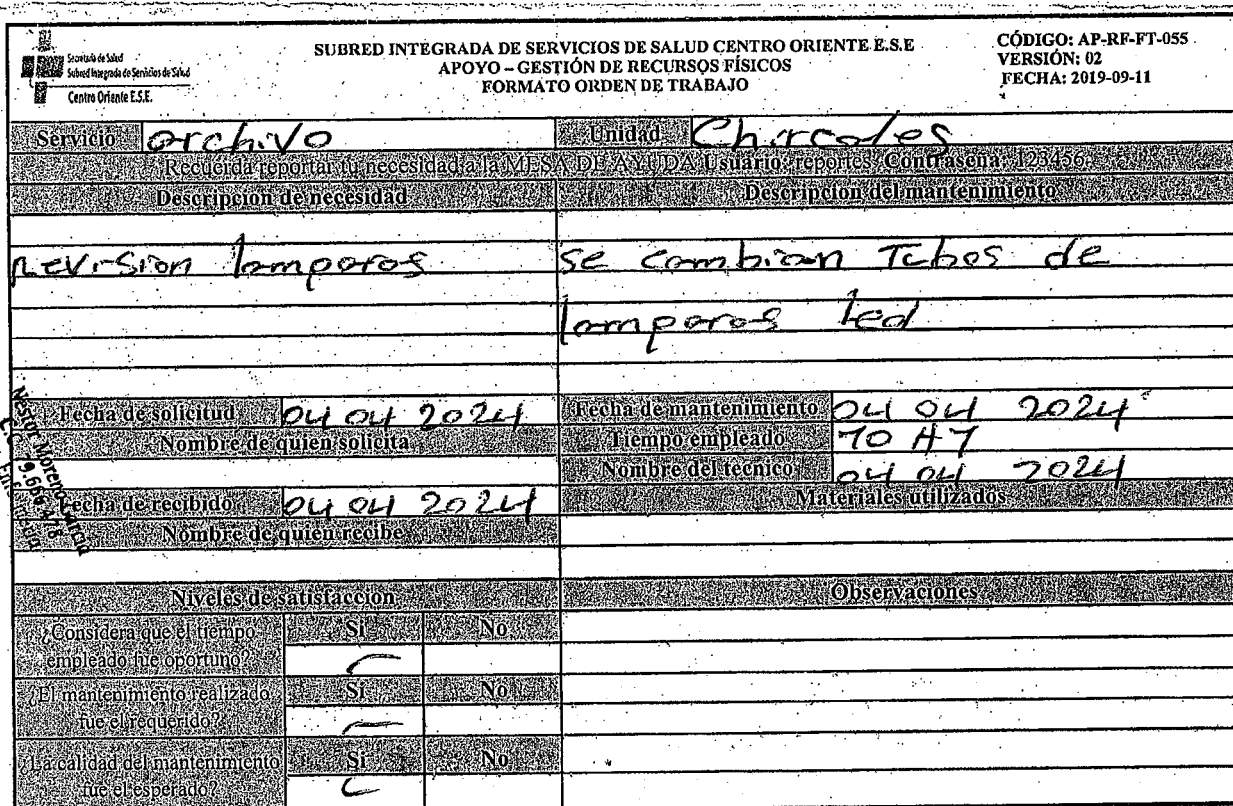 Secretaría de Salud
Subred Integrada de Servicios de Salud
Centro Oriente E.S.E.
SUBRED INTEGRADA DE SERVICIOS DE SALUD CENTRO ORIENTE E.S.E
APOYO – GESTIÓN DE RECURSOS FÍSICOS
FORMATO ORDEN DE TRABAJO
CÓDIGO: AP-RF-FT-055
VERSIÓN: 02
FECHA: 2019-09-11
Servicio archivo Unidad Chircales
Recuerda reportar tu necesidad a la MESA DE AYUDA Usuario: reportes Contraseña: 123456
Descripción de necesidad Descripción del mantenimiento
revision lamparas se cambian Tubos de
lamparas led
Fecha de solicitud 04 04 2024 Fecha de mantenimiento 04 04 2024
Nombre de quien solicita Tiempo empleado
Nombre del técnico 04 04 2024
Nestor Moreno Garcia
Fecha de recibido 04 04 2024 Materiales utilizados
Nombre de quien recibe
Niveles de satisfacción Observaciones
¿Considera que el tiempo empleado fue oportuno? Si No
¿El mantenimiento realizado fue el requerido? Si No
La calidad del mantenimiento fue el esperado? Si No